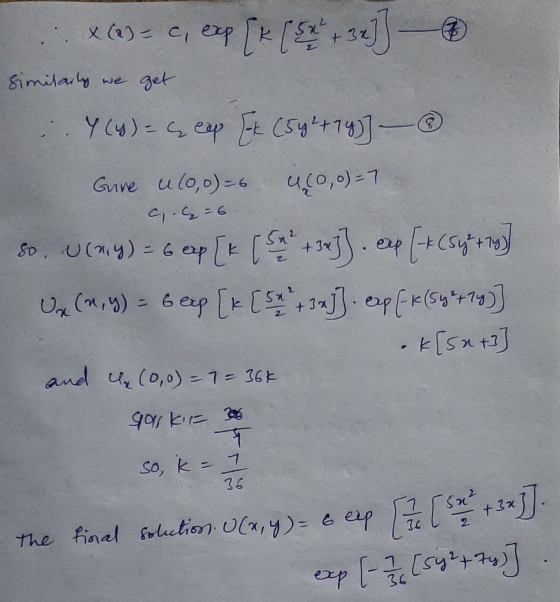 ∴ X(x) = C₁ exp [k [5x²/2 + 3x]] — ⑦
Similarly we get
∴ Y(y) = C₂ exp [-k (5y²+7y)] — ⑧
Guve u(0,0)=6 uₓ(0,0)=7
C₁ . C₂ = 6
So, U(x,y) = 6 exp [k [5x²/2 + 3x]] . exp [-k (5y²+7y)]
Uₓ(x,y) = 6 exp [k [5x²/2 + 3x]] . exp [-k(5y²+7y)]
. k[5x+3]
and uₓ(0,0) = 7 = 36k
k = 36/
so, k = 7/36
The final solution. U(x,y) = 6 exp [7/36 [5x²/2 + 3x]] .
exp [-7/36 [5y²+7y)]